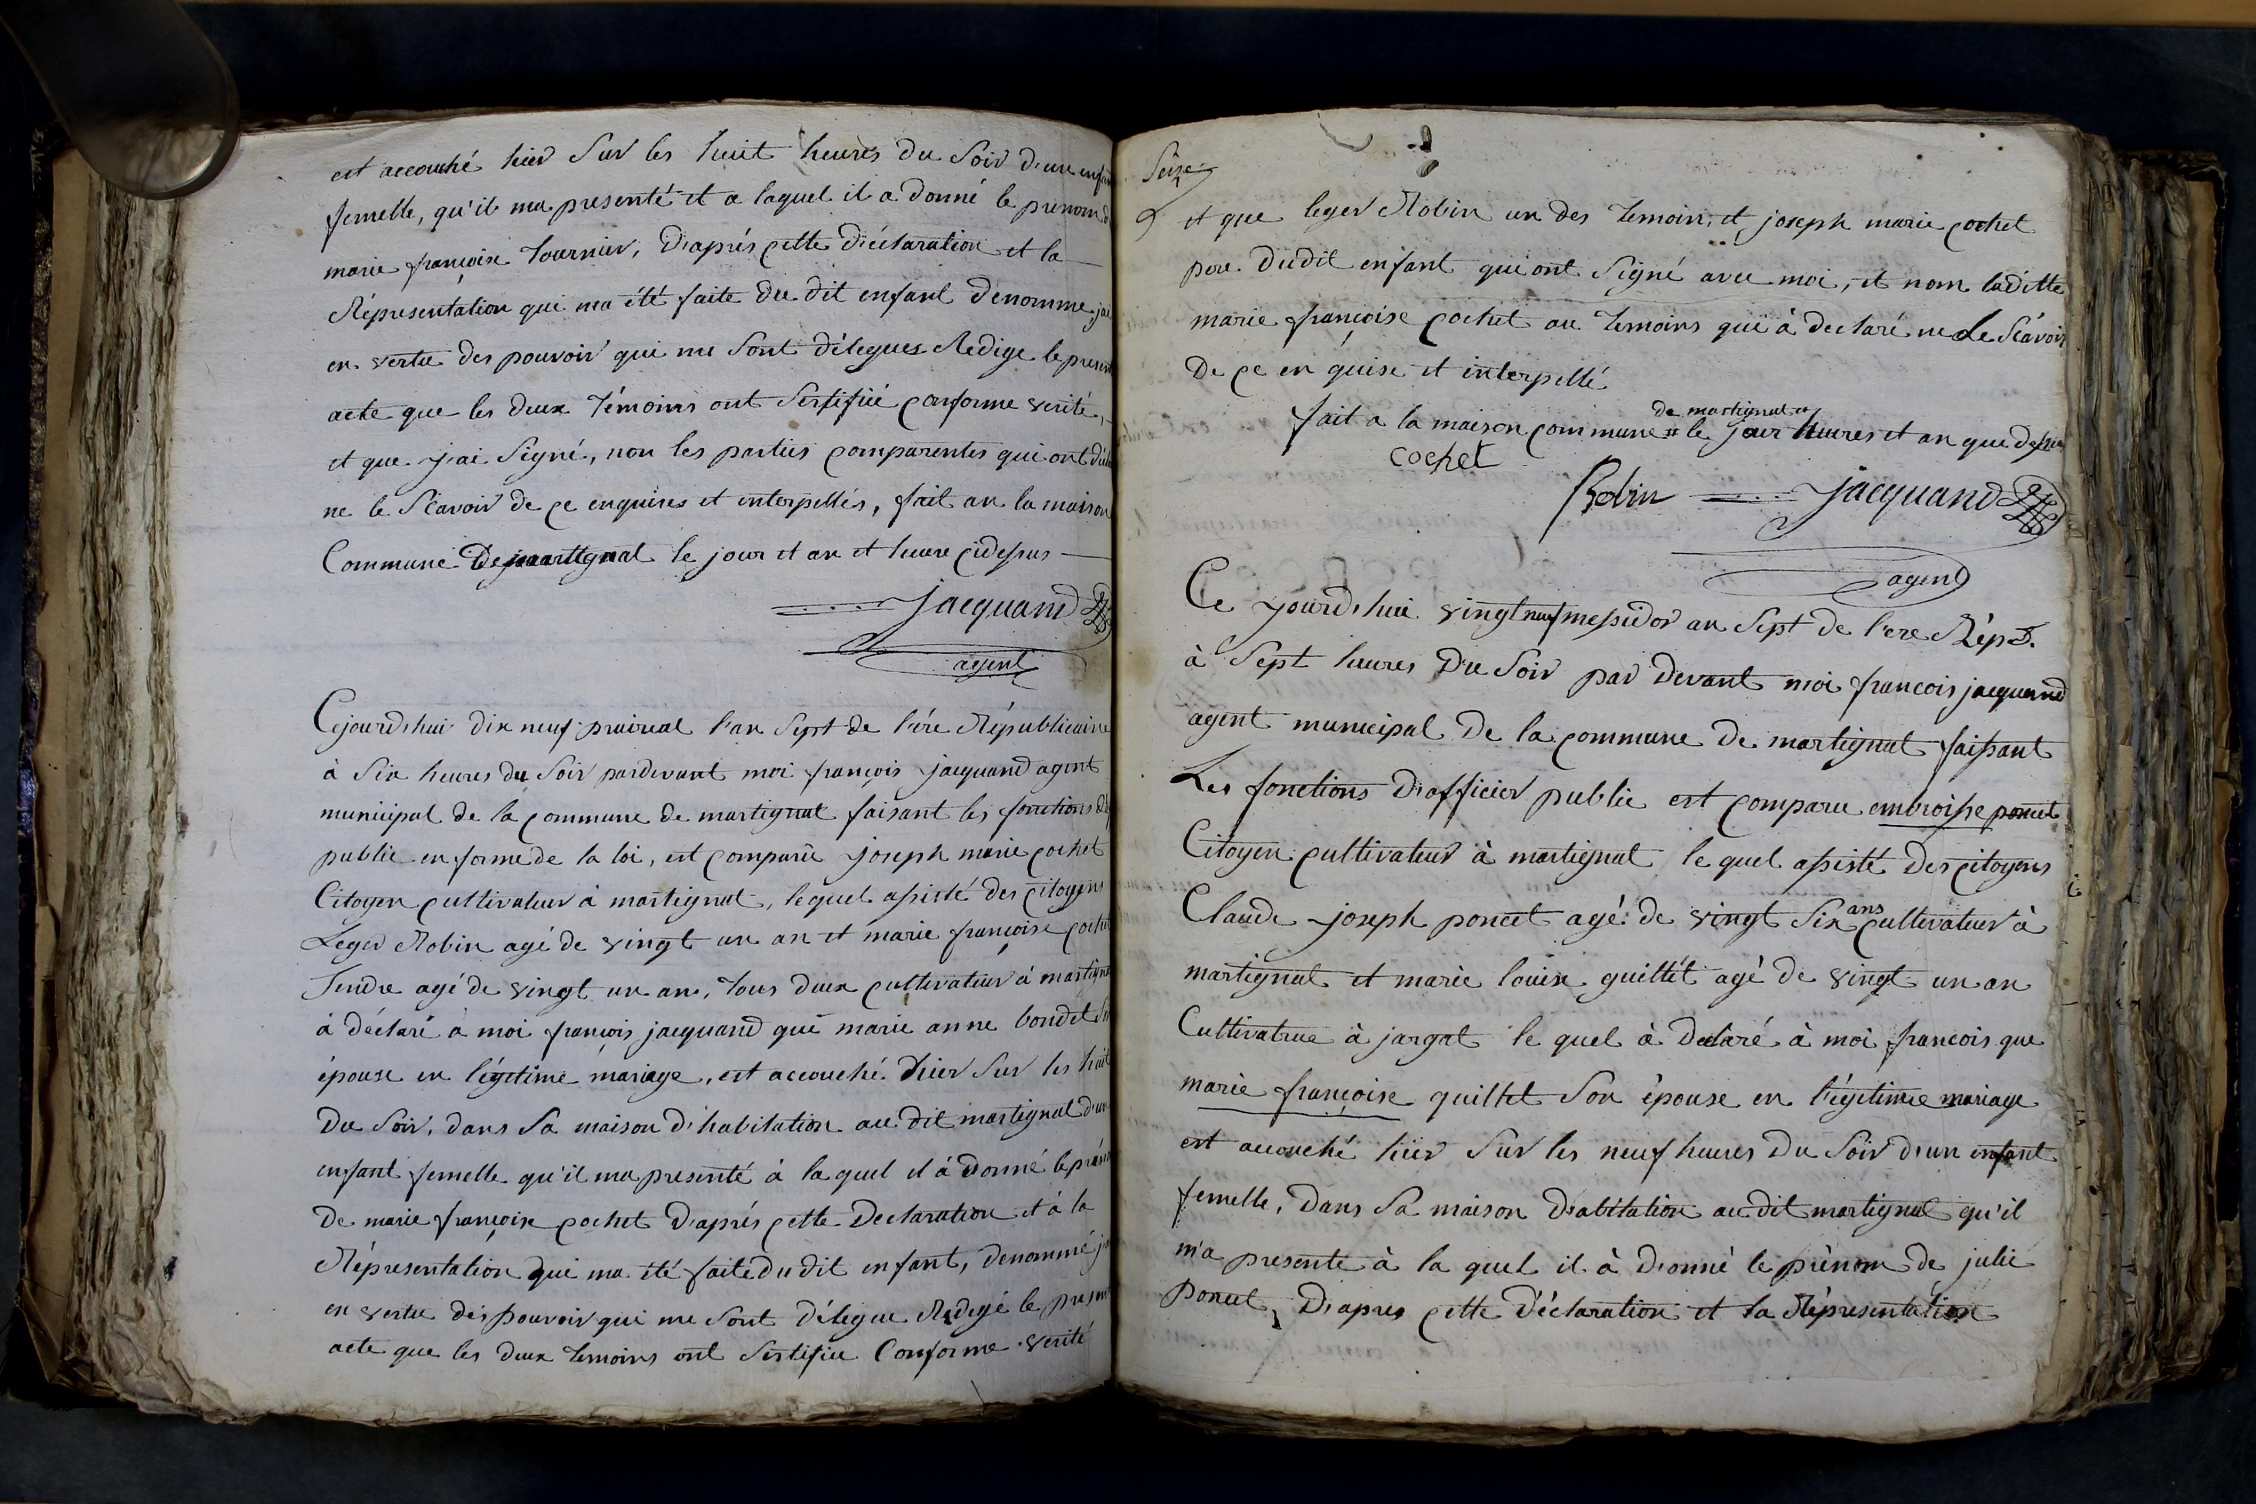 est accouché hier Sur les huit heures du Soir d'un enfan
femelle, qu'il ma presenté et a laquel il a donné le prenom d
marie françoise tournier, D'aprés cette déclaration et la
Réprésentation qui ma été faite du dit enfant denomme jai
en vertu des pouvoir qui me sont délegues Redige le present
acte que les deux témoins ont Sertifié conforme verité,
et que j'ai signé, non les parties comparentes qui ont décla
ne le sçavoir de ce enquises et interpellés, fait an la maison
Commune De martignat le jour et an et heure cidessus
jacquand
agent
Cejourd'hui dix neuf prairial l'an Sept de l'ére Républicaine
à Six heures du Soir pardevant moi françois jacquand agent
municipal de la commune de martignat faisant les fonctions d'of
public en forme de la loi, est comparu joseph marie cochet
Citoyen cultivateur à martignat, lequel assisté des citoyens
Leger Robin agé de vingt un an et marie françoise cochet
agé de vingt un an, tous deux cultivateur à martigna
à déclaré à moi françois jacquand que marie anne bondet Sn
épouse en légitime mariage, est accouché hier Sur les huit
Du Soir, dans Sa maison d'habitation au dit martignat d'un
enfant femelle qu'il ma presenté à la quel il à donné le prénom
De marie françoise cochet D'aprés cette Declaration et à la
Réprésentation qui ma été faite du dit enfant, denommé jai
en vertu des pouvoir qui me sont délegue Redigé le present
acte que les deux temoins ont Sertifiee Conforme verité
Seize
et que leger Robin un des temoin, et joseph marie cochet
pere dudit enfant qui ont Signé avec moi, et nom laditte
marie françoise cochet au temoins qui à declaré ne Le Sçavoir
De ce en quise et interpellé
de martignat #
fait a la maison commune # le jour heures et an que dessus
cochet
Robin jacquand
agent
Ce jourd'hui vingt neuf messidor an Sept de l'ere Rép.
à Sept heures Du Soir par devant moi francois jacquand
agent municipal de la commune de martignat faissant
Les fonctions D'officier public est comparu embroisse poncet
Citoyen cultivateur à martignat le quel assisté Des citoyens
ans
Claude joseph poncet agé de vingt Six cultivateur à
martignat et marie louise guillet agé de vingt un an
Cultivatrue à jargat le quel à declaré à moi francois que
marie françoise quillet Son épouse en légitimie mariage
est accouché hier Sur les neuf heures Du Soir d'un enfant
femelle, Dans Sa maison D'abitation au dit martignat qu'il
m'a presente à la quel il à Donné le prénom de julie
Poncet, D'apres cette Déclaration et la Réprésentation